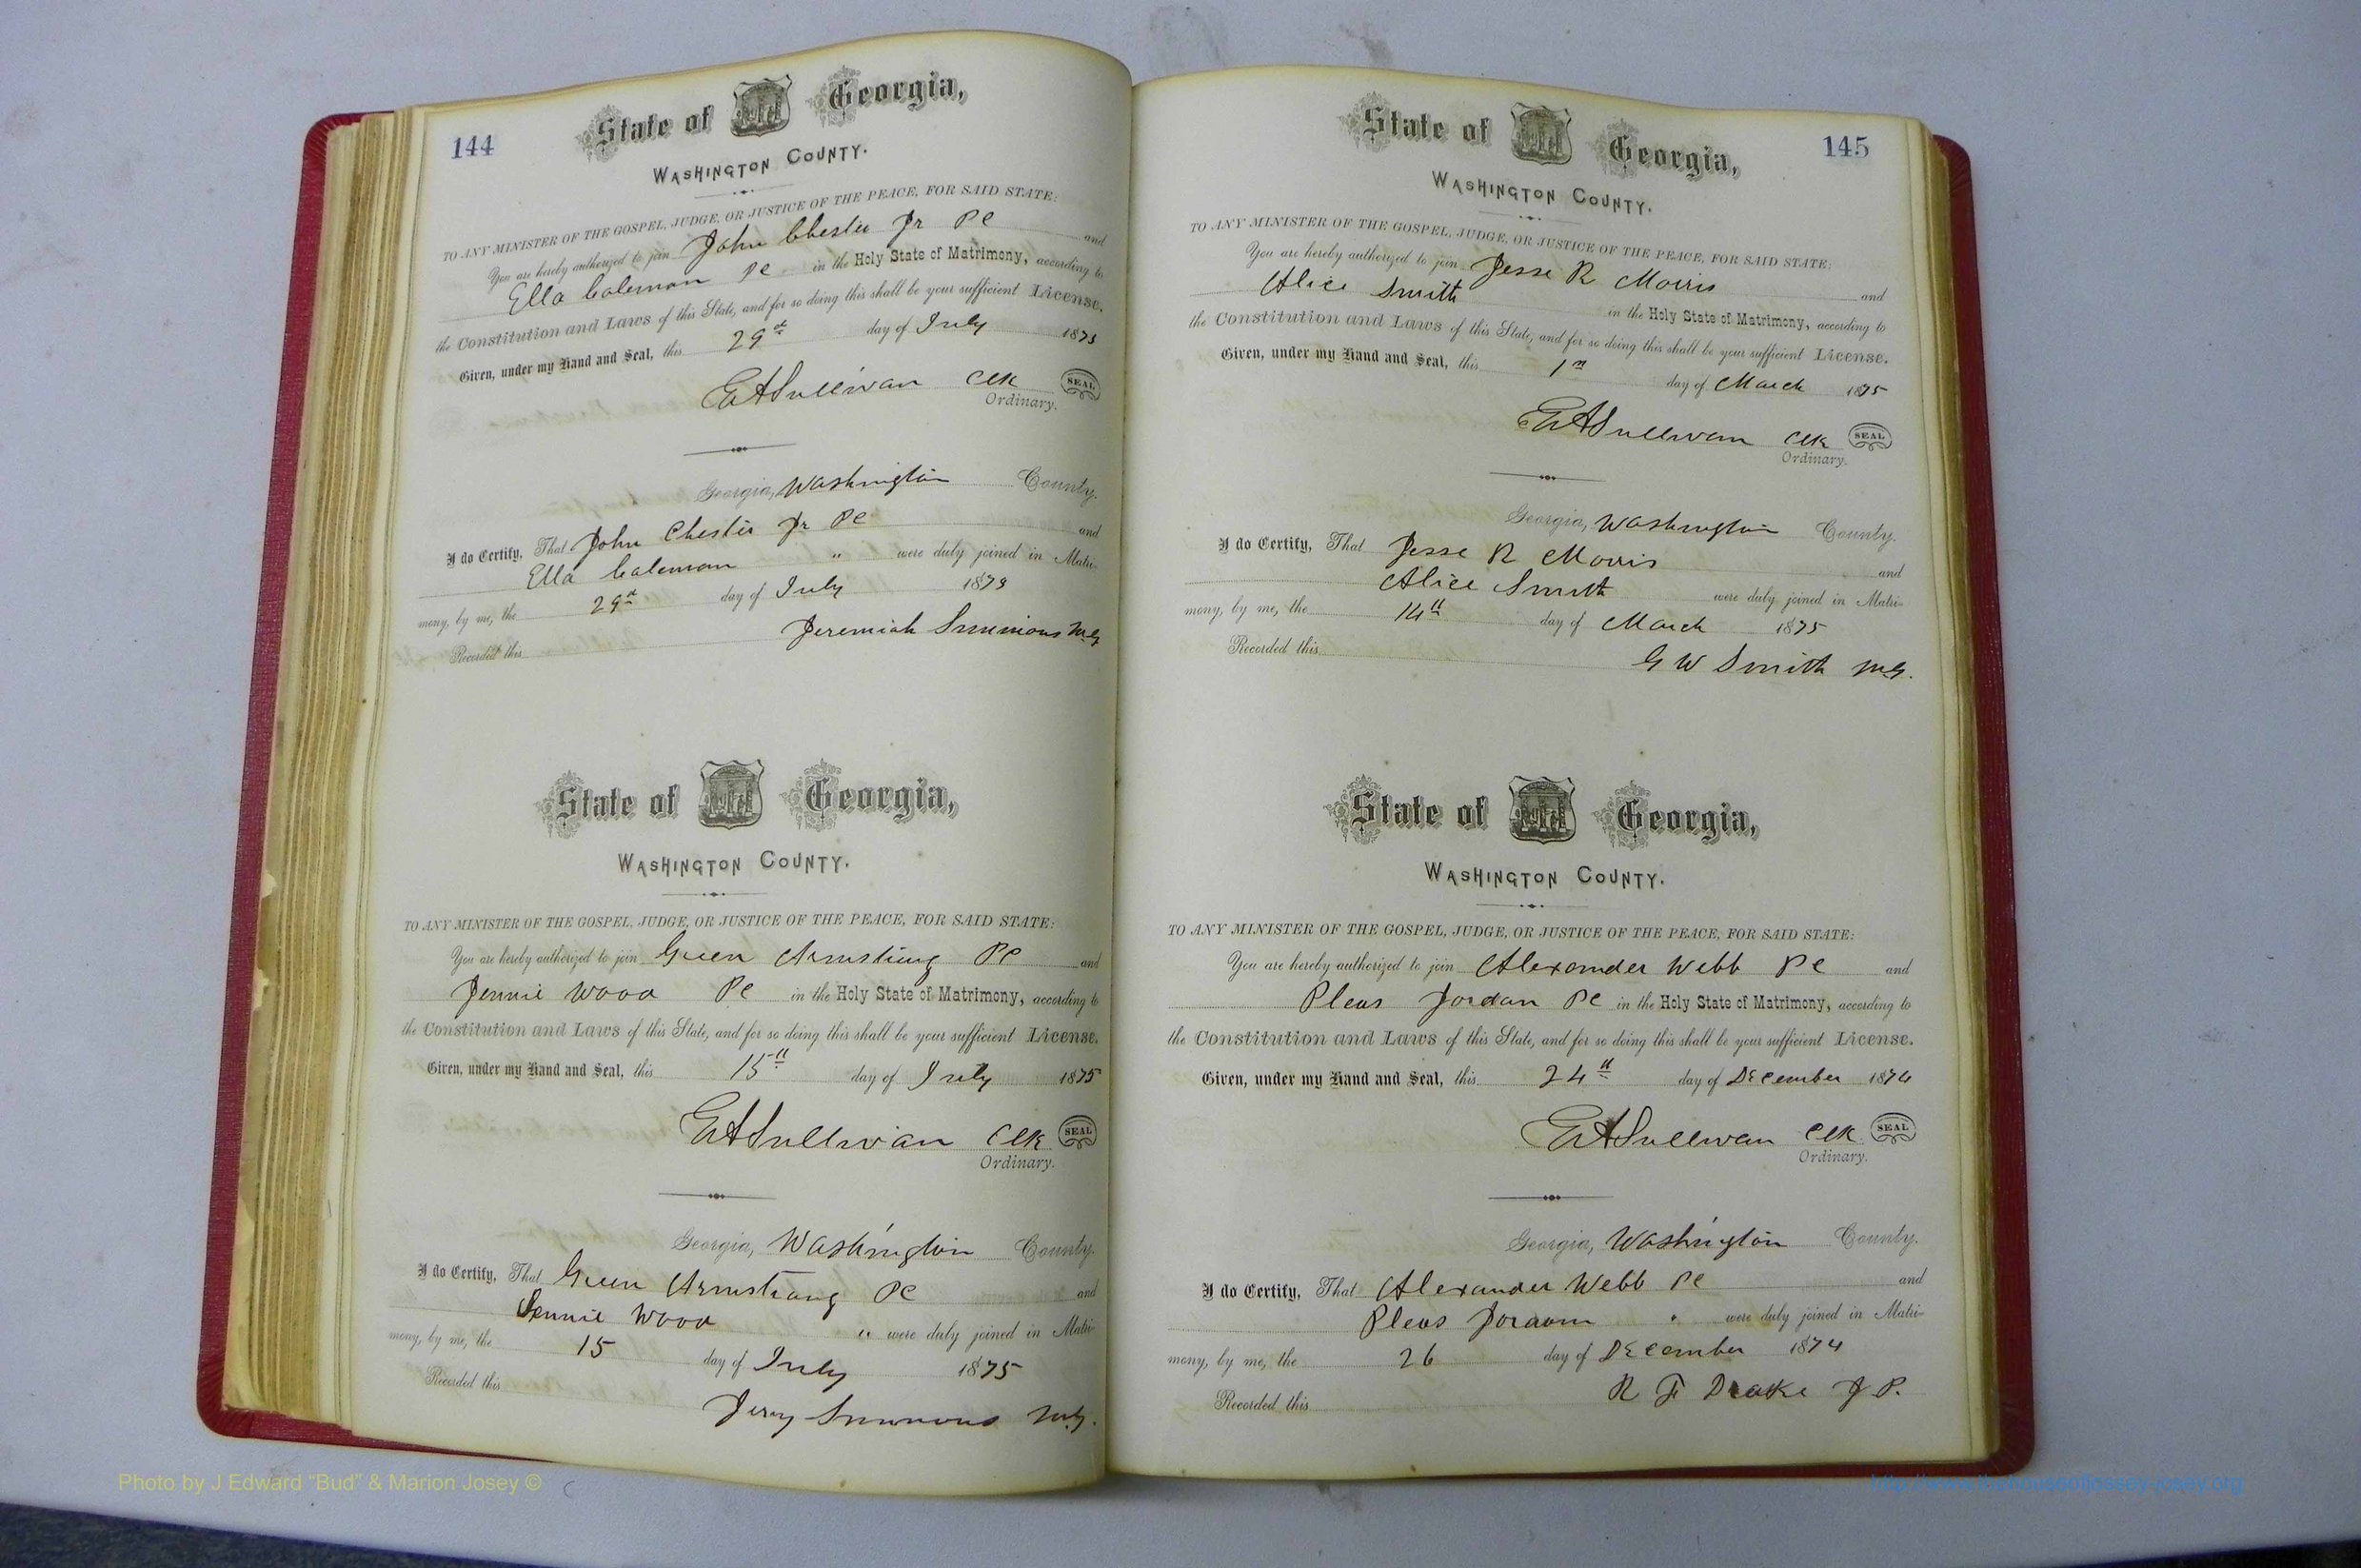 144
State of Georgia,
WASHINGTON COUNTY.
TO ANY MINISTER OF THE GOSPEL, JUDGE, OR JUSTICE OF THE PEACE, FOR SAID STATE:
You are hereby authorized to join John Chester Jr PC and
Ella Coleman PC in the Holy State of Matrimony, according to
the Constitution and Laws of this State, and for so doing this shall be your sufficient License.
Given, under my Hand and Seal, this 29th day of July 1875
E A Sullivan Clk SEAL
Ordinary.
Georgia, Washington County.
I do Certify, That John Chester Jr PC and
Ella Coleman " were duly joined in Matri-
mony, by me, the 29th day of July 1875
Jeremiah Simmons M.G
Recorded this
State of Georgia,
WASHINGTON COUNTY.
TO ANY MINISTER OF THE GOSPEL, JUDGE, OR JUSTICE OF THE PEACE, FOR SAID STATE:
You are hereby authorized to join Green Armstrong PC and
Jennie Wood PC in the Holy State of Matrimony, according to
the Constitution and Laws of this State, and for so doing this shall be your sufficient License.
Given, under my Hand and Seal, this 15th day of July 1875
E A Sullivan Clk SEAL
Ordinary.
Georgia, Washington County.
I do Certify, That Green Armstrong PC and
Jennie Wood " were duly joined in Matri-
mony, by me, the 15 day of July 1875
Recorded this
Jerry Simmons M.G.
145
State of Georgia,
WASHINGTON COUNTY.
TO ANY MINISTER OF THE GOSPEL, JUDGE, OR JUSTICE OF THE PEACE, FOR SAID STATE:
You are hereby authorized to join Jesse R Morris and
Alice Smith in the Holy State of Matrimony, according to
the Constitution and Laws of this State, and for so doing this shall be your sufficient License.
Given, under my Hand and Seal, this 1st day of March 1875
E A Sullivan Clk SEAL
Ordinary.
Georgia, Washington County.
I do Certify, That Jesse R Morris and
Alice Smith were duly joined in Matri-
mony, by me, the 14th day of March 1875
Recorded this
G W Smith M.G.
State of Georgia,
WASHINGTON COUNTY.
TO ANY MINISTER OF THE GOSPEL, JUDGE, OR JUSTICE OF THE PEACE, FOR SAID STATE:
You are hereby authorized to join Alexander Webb PC and
Pleas Jordan PC in the Holy State of Matrimony, according to
the Constitution and Laws of this State, and for so doing this shall be your sufficient License.
Given, under my Hand and Seal, this 24th day of December 1874
E A Sullivan Clk SEAL
Ordinary.
Georgia, Washington County.
I do Certify, That Alexander Webb PC and
Pleas Jordan " were duly joined in Matri-
mony, by me, the 26 day of December 1874
R F Drake J P.
Recorded this
Photo by J Edward "Bud" & Marion Josey ©
http://www.thehouseofjossey-josey.org